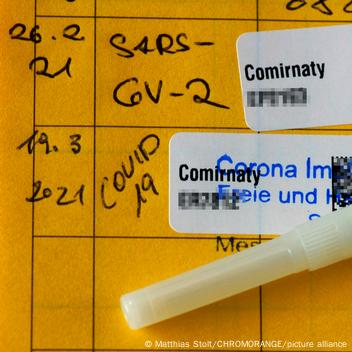 26.2
21
SARS-
CoV-2
Comirnaty
19.3
2021
COVID
19
Comirnaty
Corona Im
Freie und H
© Matthias Stolt/CHROMORANGE/picture alliance